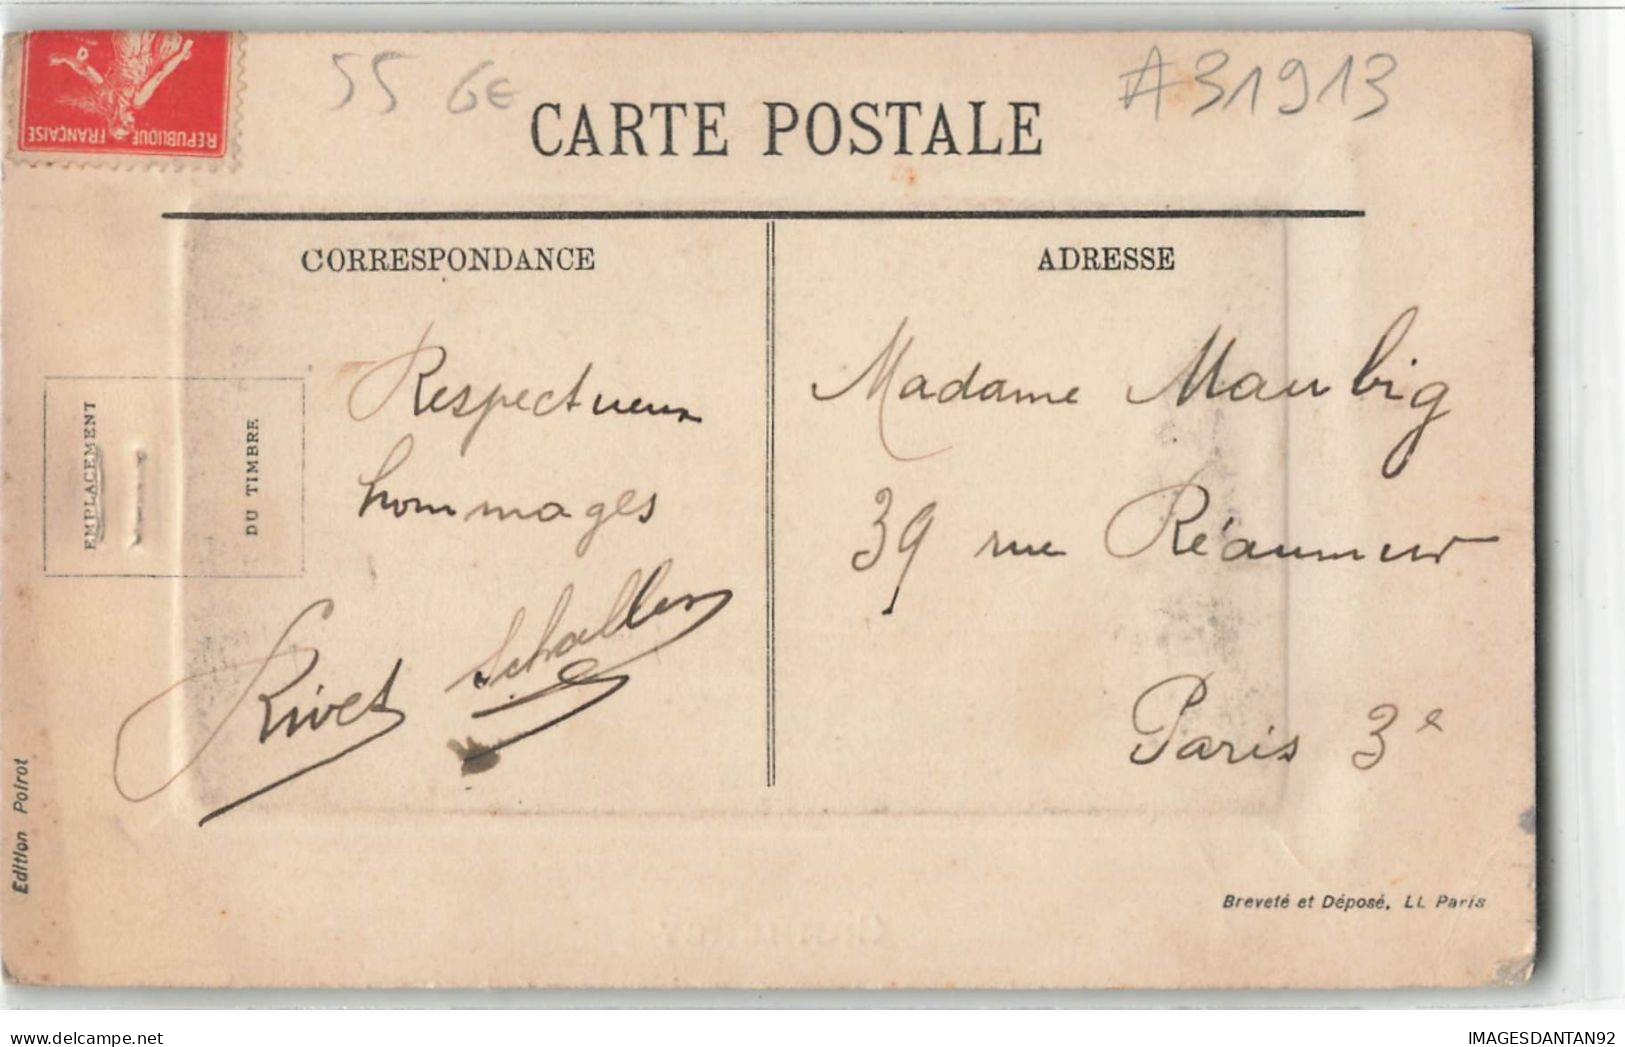 REPUBLIQUE FRANÇAISE
55 6€
A31913
CARTE POSTALE
CORRESPONDANCE
ADRESSE
EMPLACEMENT
DU TIMBRE
Respectueux
hommages
Rivet Schaller
Madame Maubig
39 rue Réaumur
Paris 3e
Edition Poirot
Breveté et Déposé, LL Paris
delcampe.net
IMAGESDANTAN92